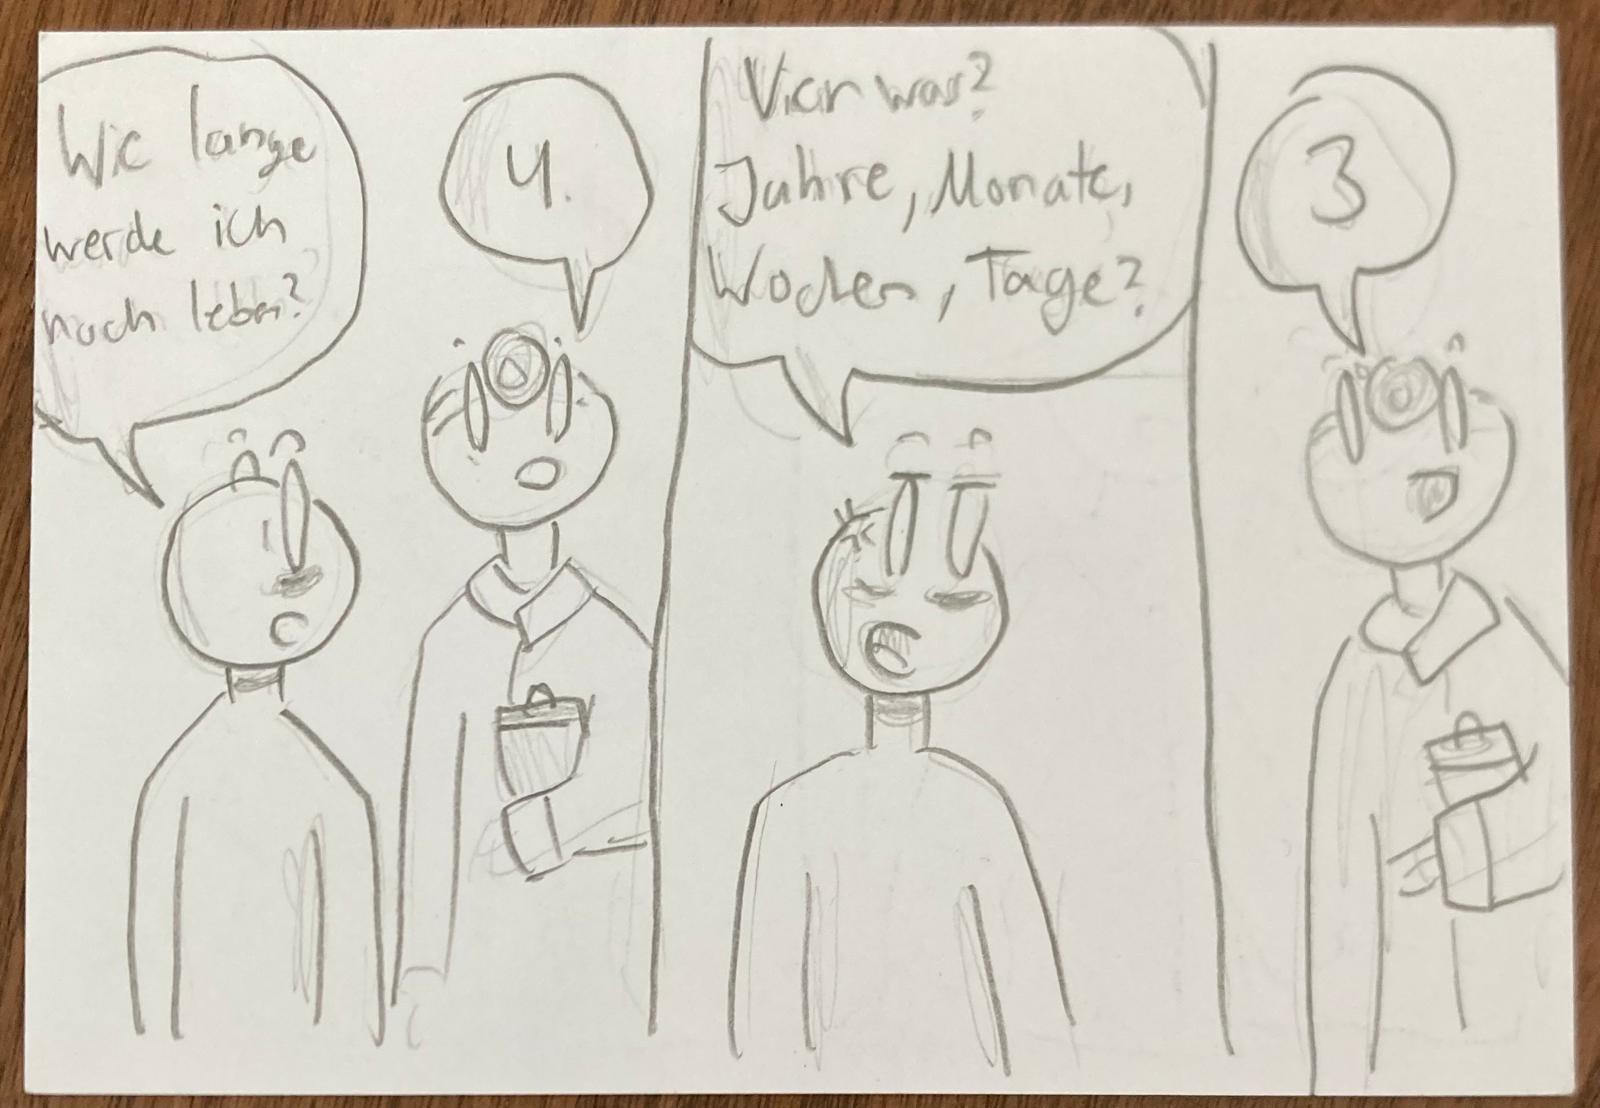 Wie lange
werde ich
noch leben?
4.
Vier was?
Jahre, Monate,
Wochen, Tage?
3